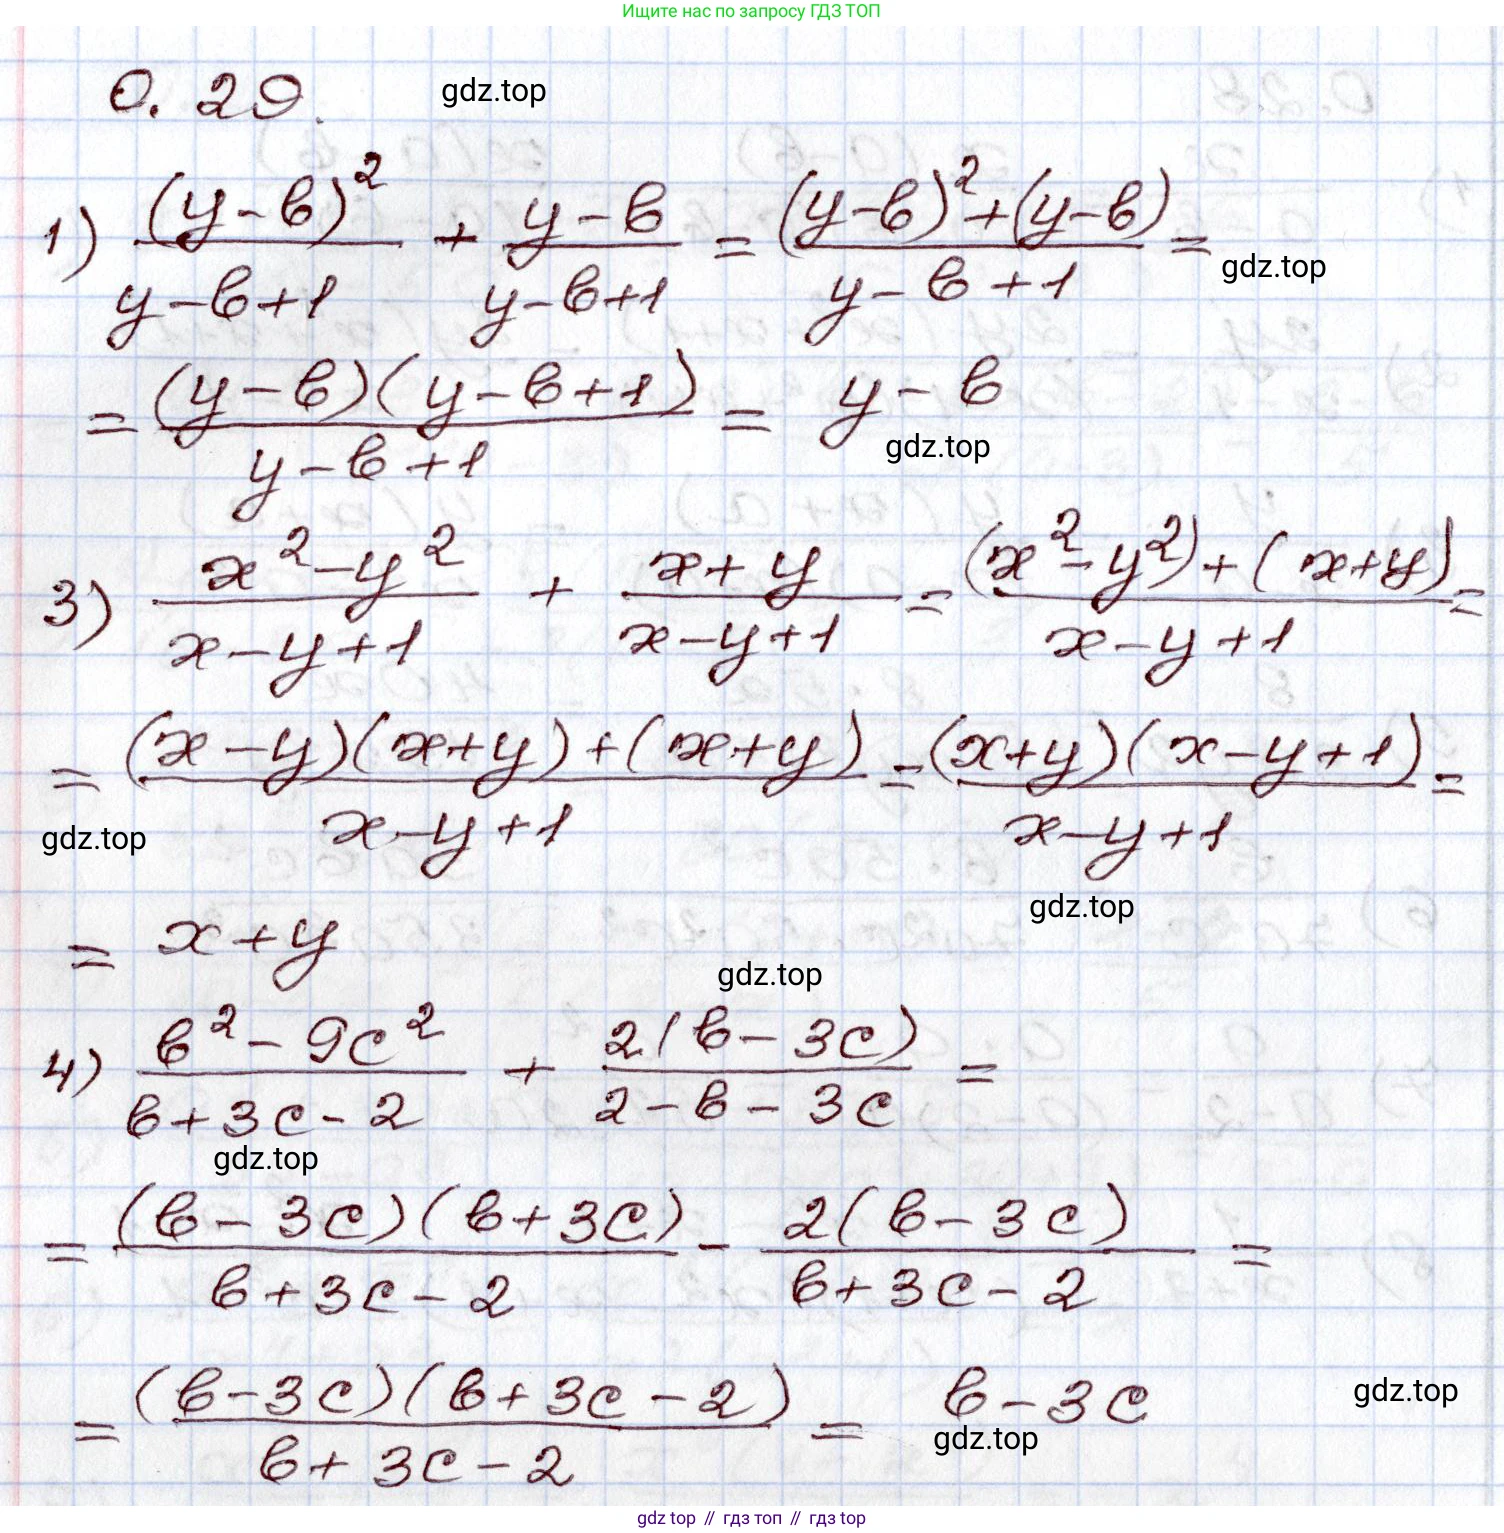 Ищите нас по запросу ГДЗ ТОП
0.29.
gdz.top
1) (y-b)²/(y-b+1) + (y-b)/(y-b+1) = ((y-b)²+(y-b))/(y-b+1) =
gdz.top
= (y-b)(y-b+1)/(y-b+1) = y-b
gdz.top
3) (x²-y²)/(x-y+1) + (x+y)/(x-y+1) = ((x²-y²)+(x+y))/(x-y+1) =
= ((x-y)(x+y)+(x+y))/(x-y+1) = (x+y)(x-y+1)/(x-y+1) =
gdz.top
gdz.top
= x+y
gdz.top
4) (b²-9c²)/(b+3c-2) + 2(b-3c)/(2-b-3c) =
gdz.top
= (b-3c)(b+3c)/(b+3c-2) - 2(b-3c)/(b+3c-2) =
= (b-3c)(b+3c-2)/(b+3c-2) = b-3c
gdz.top
gdz.top
gdz top // гдз топ // гдз top